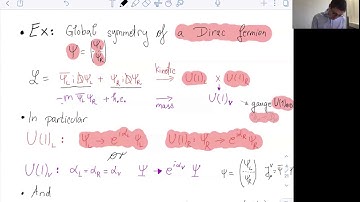 • Ex: Global symmetry of a Dirac fermion
Ψ = (Ψ_L Ψ_R)
ℒ = Ψ̄_L i D̸ Ψ_L + Ψ̄_R i D̸ Ψ_R → kinetic U(1)_L × U(1)_R
-m Ψ̄_L Ψ_R + h.c. → mass U(1)_V → gauge
• In particular
U(1)_L: Ψ_L → e^{iα_L} Ψ_L U(1)_R: Ψ_R → e^{iα_R} Ψ_R
U(1)_V: α_L = α_R = α_V Ψ → e^{iα_V} Ψ
• And